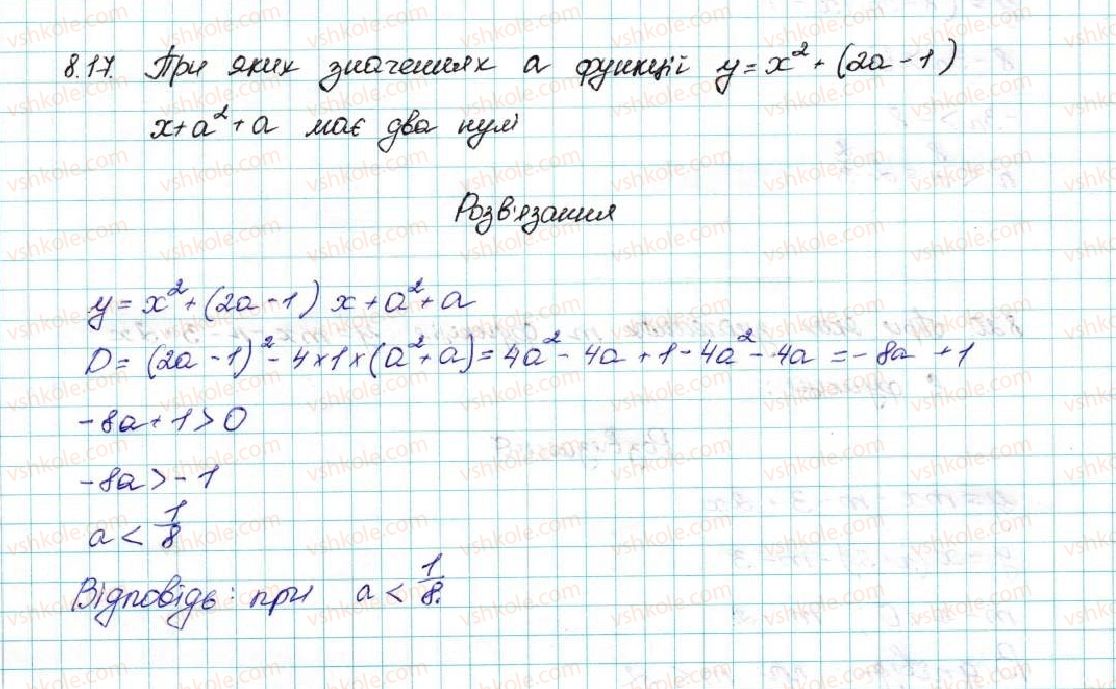 8.17. При яких значеннях а функції y = x² + (2a - 1)
x + a² + a має два нулі
Розв'язання
y = x² + (2a - 1) x + a² + a
D = (2a - 1)² - 4 × 1 × (a² + a) = 4a² - 4a + 1 - 4a² - 4a = - 8a + 1
-8a + 1 > 0
-8a > -1
a < 1/8
Відповідь: при a < 1/8.